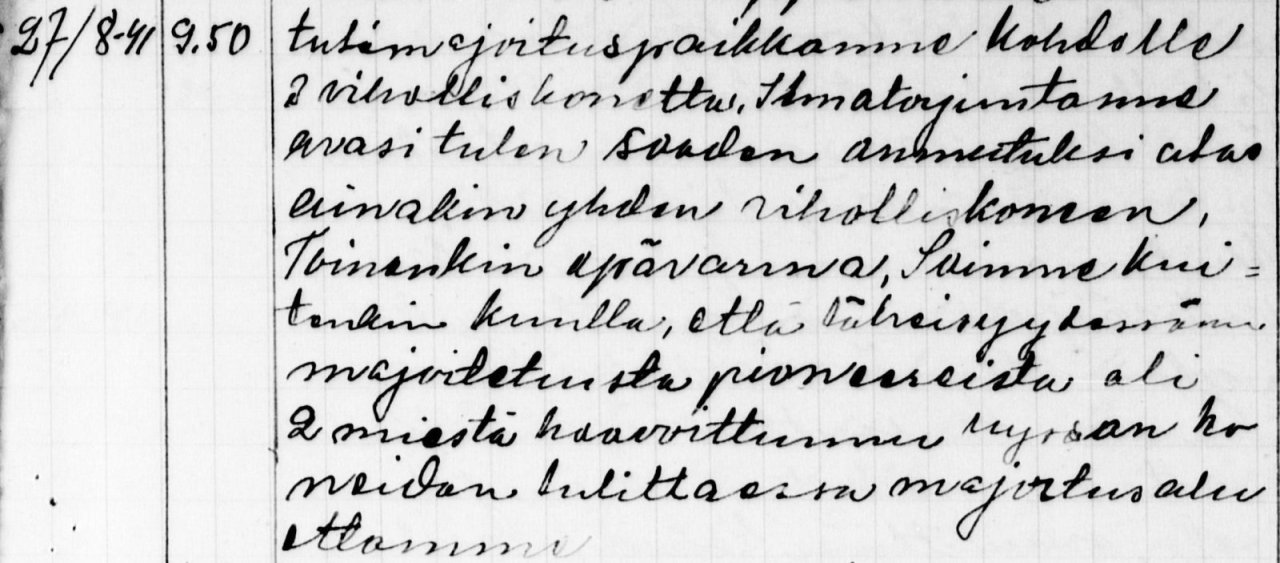 27/8-41 9.50 tuli majoituspaikkamme kohdalle
2 viholliskonetta. Ilmatorjuntamme
avasi tulen saaden ammutuksi alas
ainakin yhden viholliskoneen,
Toinenkin epävarma, Saimme kui=
tenkin kuulla, että läheisyydessämme
majoitetuista pioneereista oli
2 miestä haavoittunut ryssän ko
neiden tulittaessa majoitusalu
ettamme